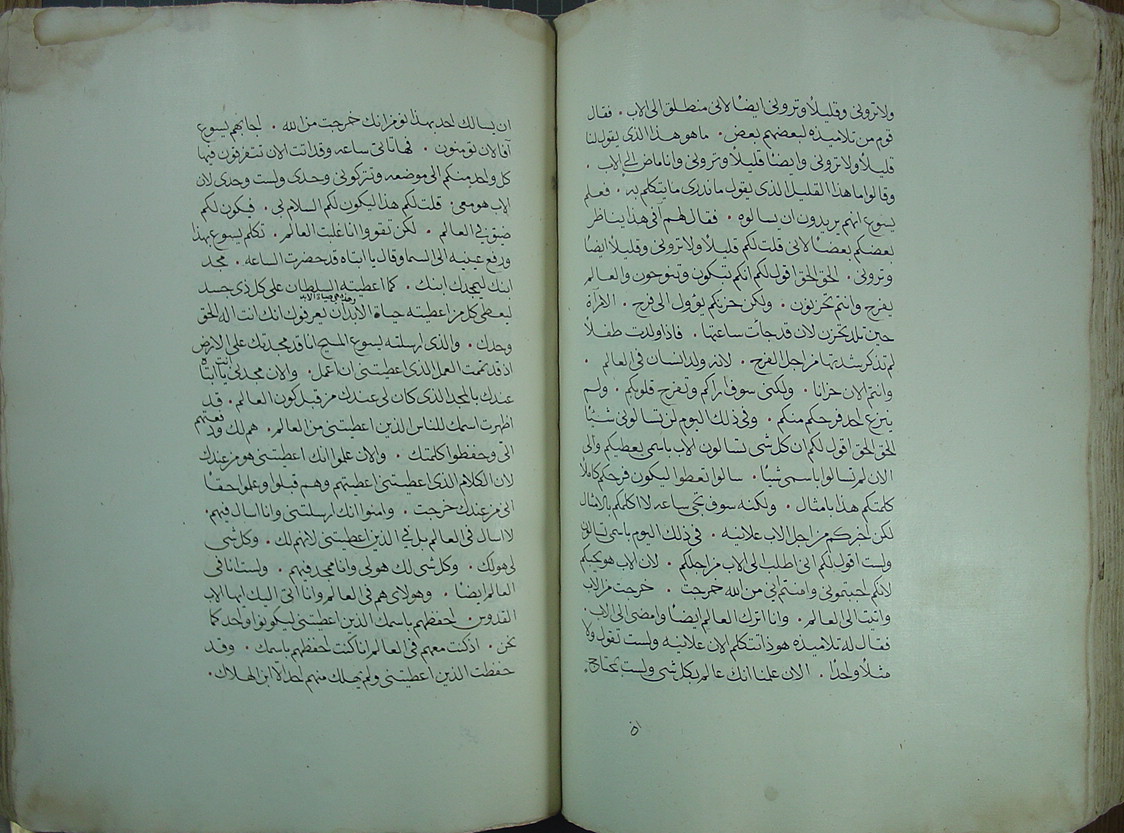 ولا تروني وقليلاً وتروني ايضًا لاني منطلق الى الاب . فقال
قوم من تلاميذه لبعضهم بعض . ما هو هذا الذي يقول لنا
قليلاً ولا تروني وايضًا قليلاً وتروني وانا ماض الى الاب .
وقالوا ما هذا القليل الذي يقول ما ندري ما يتكلم به . فعلم
يسوع انهم يريدون ان يسالوه . فقال لهم افي هذا يناظر
بعضكم بعضًا لاني قلت لكم قليلاً ولا تروني وقليلاً ايضًا
وتروني . الحق الحق اقول لكم انكم تبكون وتنوحون والعالم
يفرح وانتم تحزنون . ولكن حزنكم يؤول الى فرح . الامرأة
حين تلد تحزن لان قد جات ساعتها . فاذا ولدت طفلاً
لم تذكر شدتها من اجل الفرح . لانه ولد انسان في العالم .
وانتم الان حزانا . ولكني سوف اراكم وتفرح قلوبكم . ولم
ينزع احد فرحكم منكم . وفي ذلك اليوم لن تسالوني شيًا
الحق الحق اقول لكم ان كل شي تسالون الاب باسمي يعطيكم والى
الان لم تسالوا باسمي شيًا . سالوا تعطوا ليكون فرحكم كاملاً
كلمتكم هذا بامثال . ولكنه سوف تجي ساعه لا اكلمكم بالامثال
لكن اخبركم من اجل الاب علانيه . في ذلك اليوم باسمي تسالون
ولست اقول لكم اني اطلب الى الاب من اجلكم . لان الاب هو يحبكم
لانكم احببتموني وامنتم اني من الله خرجت . خرجت من الاب
واتيت الى العالم . وانا اترك العالم ايضًا وامضي الى الاب .
فقال له تلاميذه هوذا تتكلم الان علانيه ولست تقول ولا
مثلاً واحدًا . الان علمنا انك عالم بكل شي ولست بمحتاج .
ان يسالك احد بهذا نومن انك خرجت من الله . اجابهم يسوع
آفالان تؤمنون . فها تاتي ساعه وقد اتت الان تتفرقون فيها
كل واحد منكم الى موضعه وتتركوني وحدي ولست وحدي لان
الاب هو معي . قلت لكم هذا ليكون لكم السلام بي . فيكون لكم
ضيق في العالم . لكن تقووا انا غلبت العالم . تكلم يسوع بهذا
ورفع عينيه الى السما وقال يا ابتاه قد حضرت الساعه . مجد
ابنك ليمجدك ابنك . كما اعطيته السلطان على كل ذي جسد
وهذه هي حياة الابد
ليعطي كل من اعطيته حياة الابد ان يعرفون انك انت اله الحق
وحدك . والذي ارسلته يسوع المسيح انا قد مجدتك على الارض
اذ قد تممت العمل الذي اعطيتني ان اعمل . والان مجدني انت يا ابتاه
عندك بالمجد الذي كان لي عندك من قبل كون العالم . قد
اظهرت اسمك للناس الذين اعطيتني من العالم . هم لك ودفعتهم
الي وحفظوا كلمتك . والان علموا انك اعطيتني هو من عندك
لان الكلام الذي اعطيتني اعطيتهم وهم قبلوا وعلموا حقًا
اني من عندك خرجت . وامنوا انك ارسلتني وانا اسال فيهم .
لا اسال في العالم بل في الذين اعطيتني لانهم لك . وكل شي
لي هو لك . وكل شي لك هو لي وانا ممجد فيهم . ولست انا في
العالم ايضًا . وهولاي هم في العالم وانا اتي اليك ايها الاب
القدوس . احفظهم باسمك الذين اعطيتني ليكونوا واحد كما
نحن . اذ كنت معهم في العالم انا كنت احفظهم باسمك . وقد
حفظت الذين اعطيتني ولم يهلك منهم احد الّا ابن الهلاك .